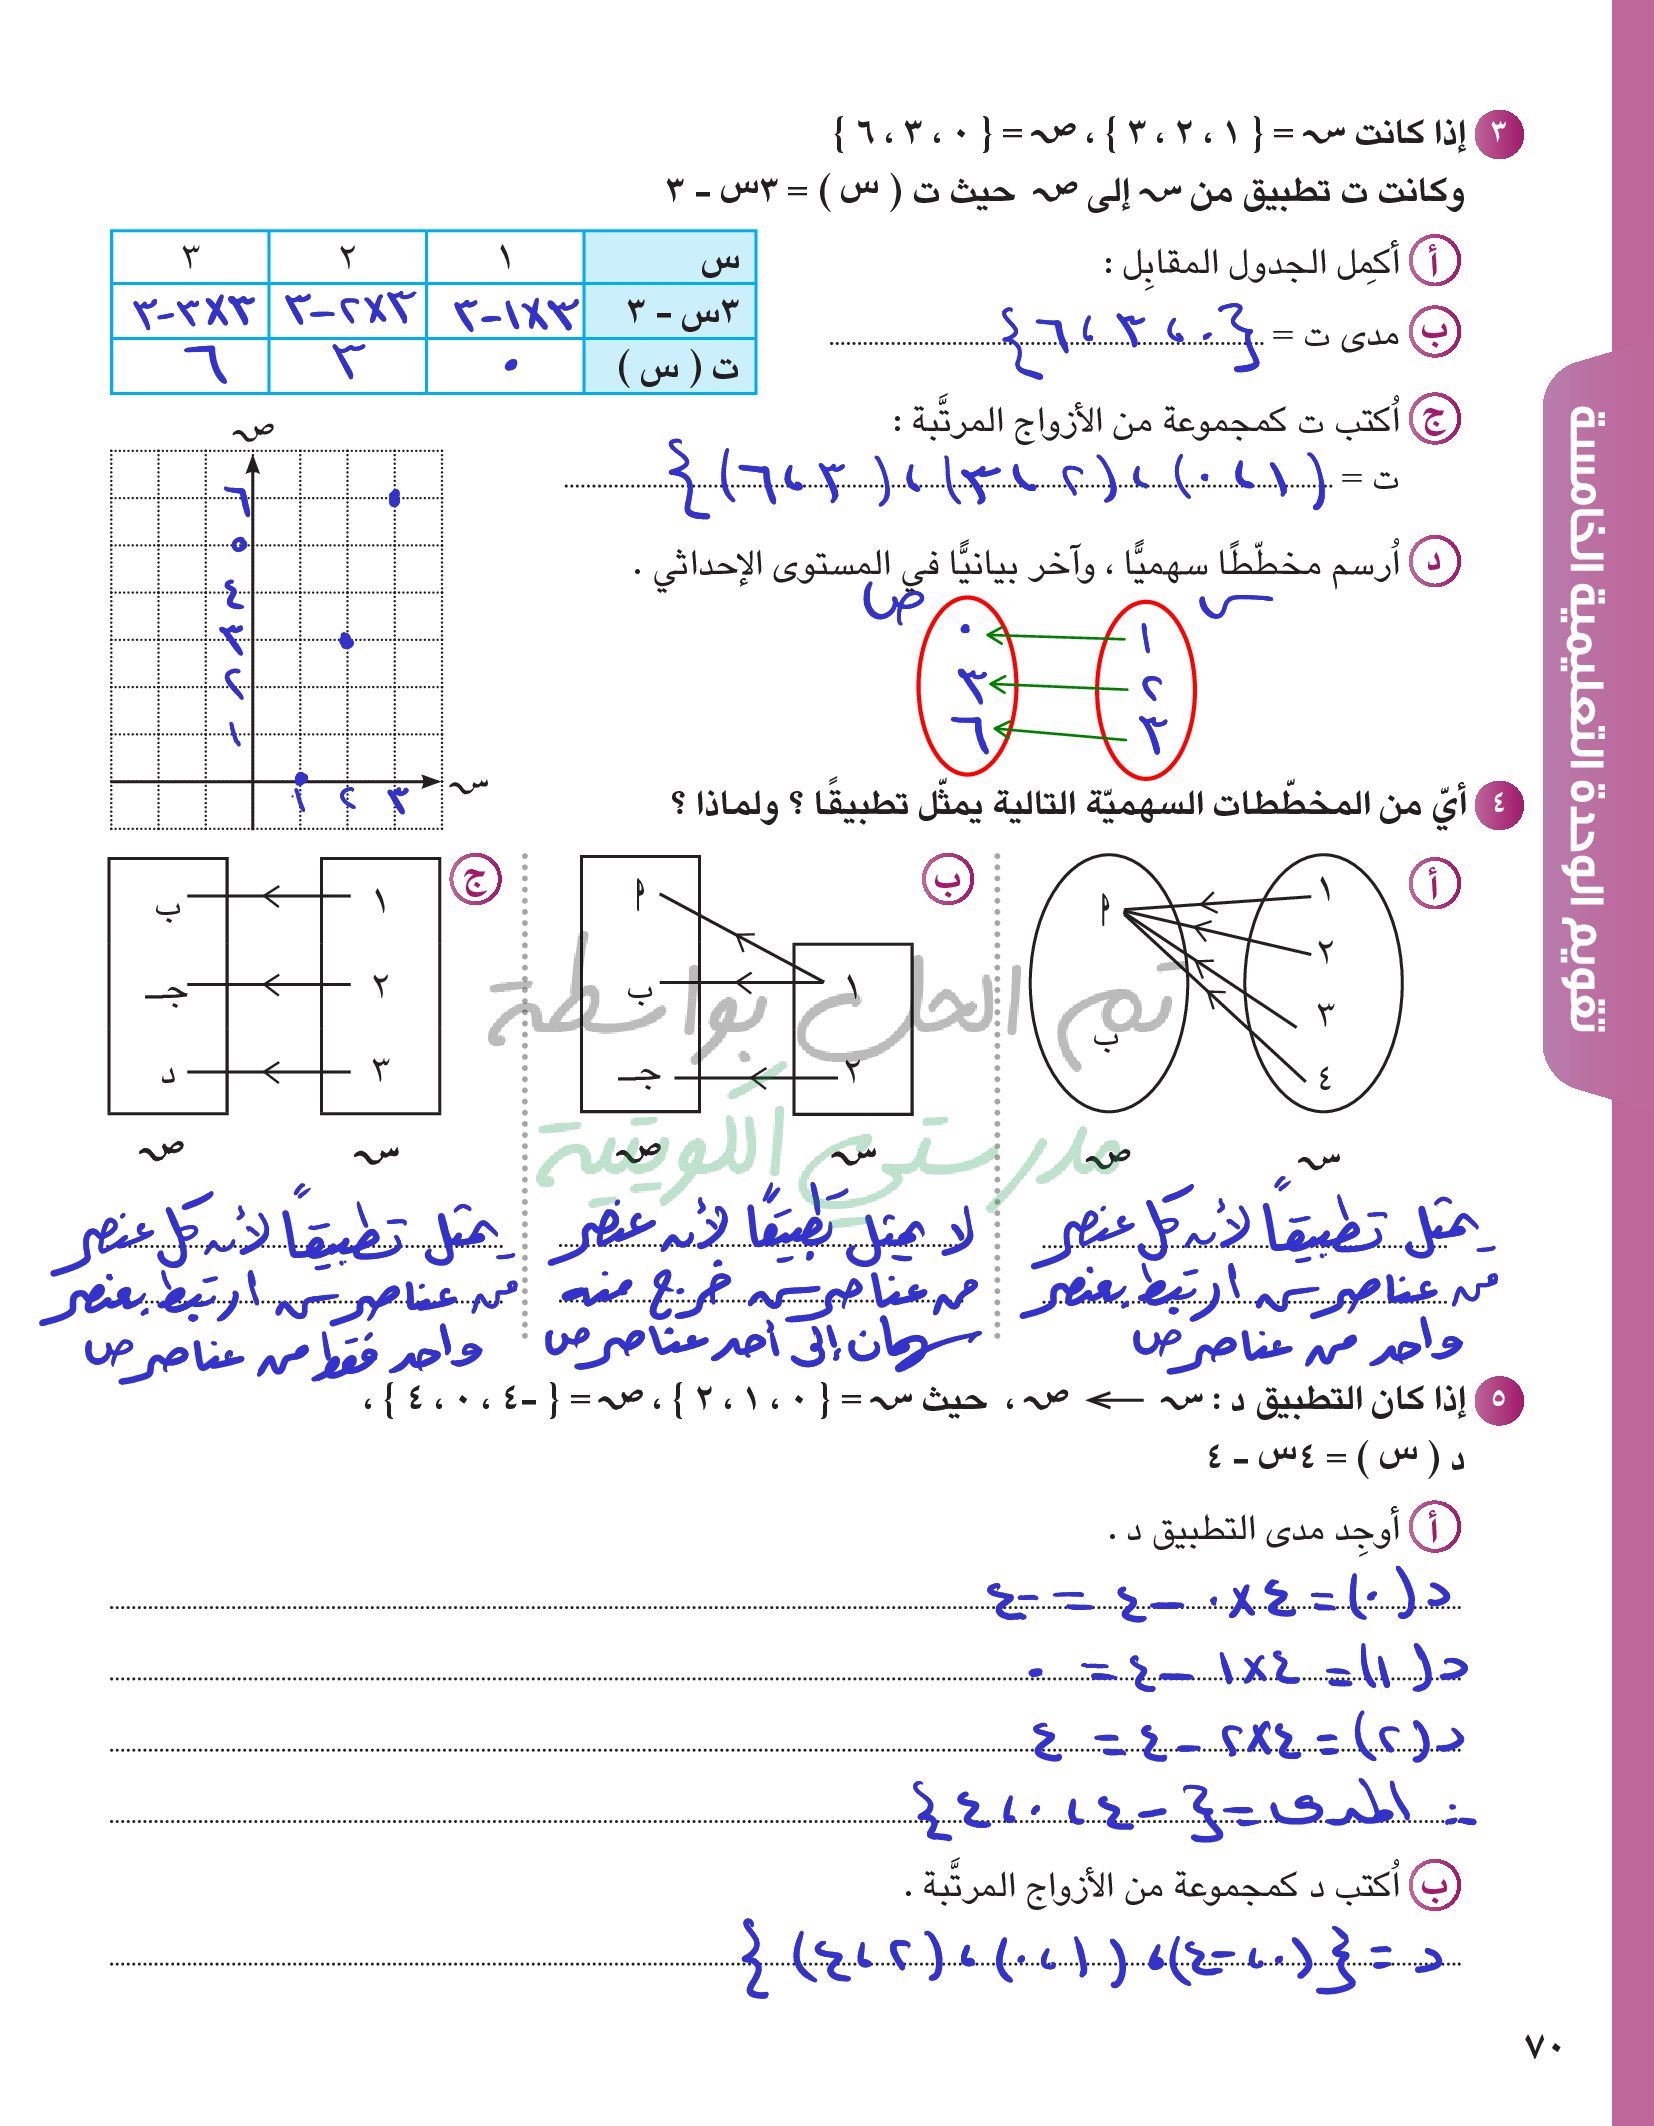 ٣ إذا كانت سـ = { ١ ، ٢ ، ٣ } ، صـ = { ٠ ، ٣ ، ٦ }
وكانت ت تطبيق من سـ إلى صـ حيث ت ( س ) = ٣س - ٣
أ أكمِل الجدول المقابِل :
س ١ ٢ ٣
٣س - ٣ ٣×١-٣ ٣×٢-٣ ٣×٣-٣
ت ( س ) ٠ ٣ ٦
ب مدى ت = {٠ ، ٣ ، ٦}
ج اُكتب ت كمجموعة من الأزواج المرتَّبة :
ت = (١ ، ٠) ، (٢ ، ٣) ، (٣ ، ٦)}
د اُرسم مخطّطًا سهميًّا ، وآخر بيانيًّا في المستوى الإحداثي .
س ص
١ ٠
٢ ٣
٣ ٦
صـ
٦
٥
٤
٣
٢
١
١ ٢ ٣ سـ
٤ أيّ من المخطّطات السهميّة التالية يمثّل تطبيقًا ؟ ولماذا ؟
أ
١ ٢ ٣ ٤
أ ب
سـ صـ
ب
١ ٢
أ ب جـ
سـ صـ
ج
١ ٢ ٣
ب جـ د
سـ صـ
تم الحل بواسطة
مدرستي الكويتية
يمثل تطبيقاً لأنه كل عنصر
من عناصر س ارتبط بعنصر
واحد من عناصر ص
لا يمثل تطبيقاً لأنه عنصر
من عناصر س خرج منه
سهمان إلى أحد عناصر ص
يمثل تطبيقاً لأنه كل عنصر
من عناصر س ارتبط بعنصر
واحد فقط من عناصر ص
٥ إذا كان التطبيق د : سـ ← صـ ، حيث سـ = { ٠ ، ١ ، ٢ } ، صـ = { -٤ ، ٠ ، ٤ } ،
د ( س ) = ٤س - ٤
أ أوجِد مدى التطبيق د .
د(٠) = ٤×٠ - ٤ = -٤
د(١) = ٤×١ - ٤ = ٠
د(٢) = ٤×٢ - ٤ = ٤
∴ المدى = {-٤ ، ٠ ، ٤}
ب اُكتب د كمجموعة من الأزواج المرتَّبة .
د = {(٠ ، -٤) ، (١ ، ٠) ، (٢ ، ٤)}
تقويم الوحدة التعليمية الخامسة
٧٠